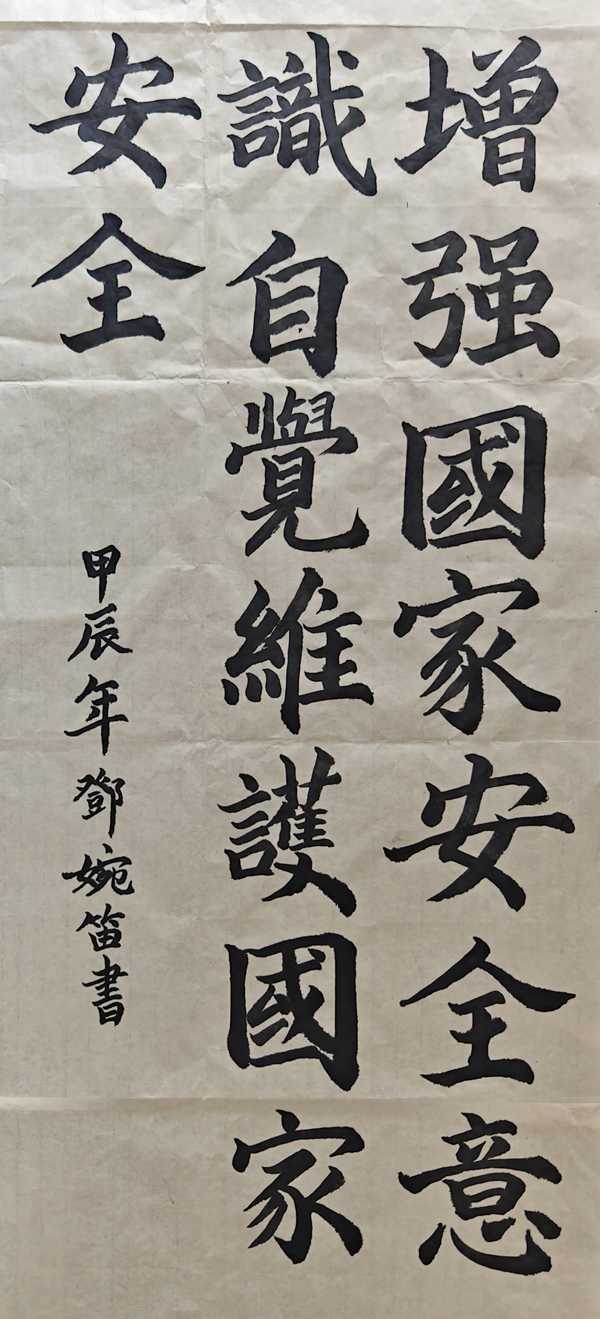 增强國家安全意
識自覺維護國家
安全
甲辰年鄧婉笛書